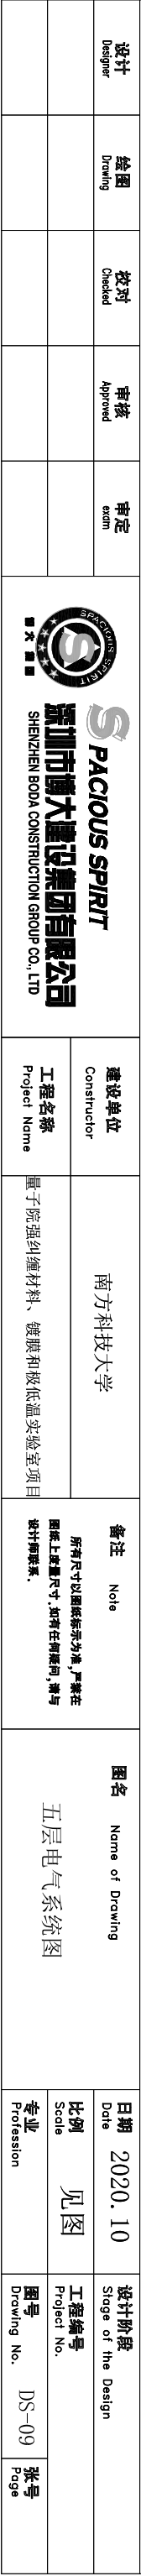 设计
Designer
绘图
Drawing
校对
Checked
审核
Approved
审定
exam
SPACIOUS SPIRIT
S
博大建设
SPACIOUS SPIRIT
深圳市博大建设集团有限公司
SHENZHEN BODA CONSTRUCTION GROUP CO., LTD
建设单位
Constructor
南方科技大学
工程名称
Project Name
量子院强纠缠材料、镀膜和极低温实验室项目
备注 Note
所有尺寸以图纸标示为准,严禁在
图纸上度量尺寸.如有任何疑问,请与
设计师联系.
图名 Name of Drawing
五层电气系统图
日期
Date
2020.10
设计阶段
Stage of the Design
比例
Scale
见图
工程编号
Project No.
专业
Profession
图号
Drawing No.
DS-09
张号
Page